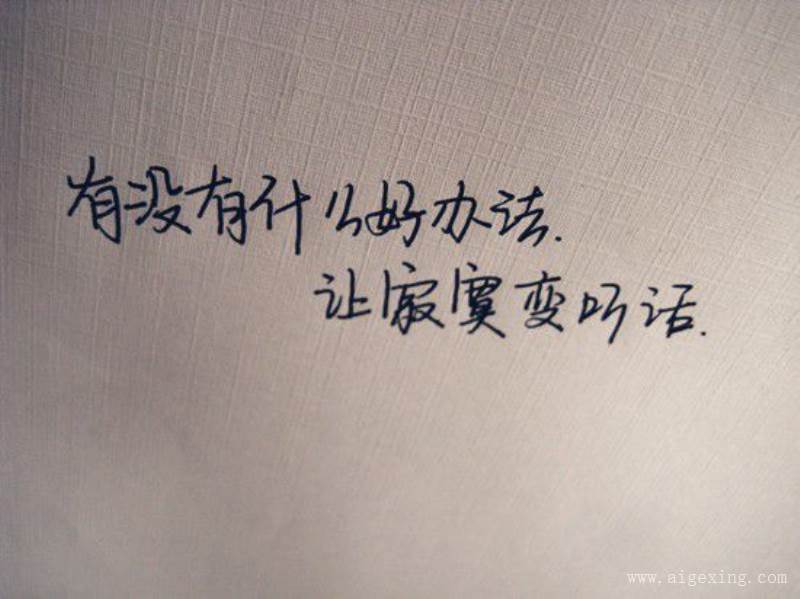 有没有什么好办法.
让寂寞变听话.
www.aigexing.com